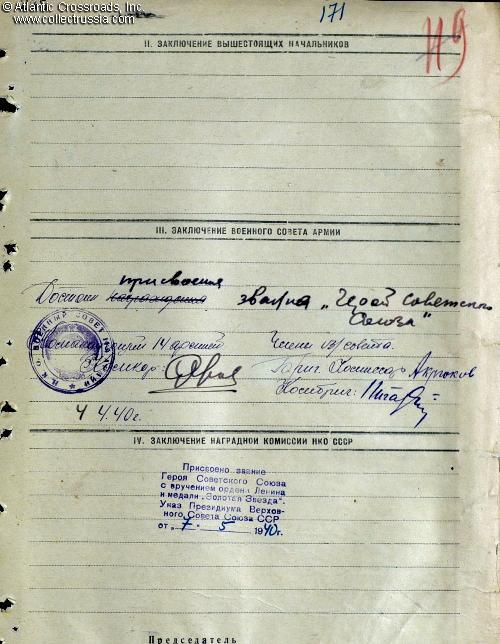 © Atlantic Crossroads, Inc.
www.collectrussia.com
171
119
II. ЗАКЛЮЧЕНИЕ ВЫШЕСТОЯЩИХ НАЧАЛЬНИКОВ
III. ЗАКЛЮЧЕНИЕ ВОЕННОГО СОВЕТА АРМИИ
присвоения
Достоин награждения звания „Герой Советского
Союза"
Командующий 14 армией Члены в/совета.
Комкор: Бриг. Комиссар
Комбриг:
ВОЕННЫЙ СОВЕТ
Н.К.О.
4 4.40г.
IV. ЗАКЛЮЧЕНИЕ НАГРАДНОЙ КОМИССИИ НКО СССР
Присвоено звание
Героя Советского Союза
с вручением ордена Ленина
и медали „Золотая Звезда".
Указ Президиума Верхов-
ного Совета Союза ССР
от „7" 5 1940г.
Председатель